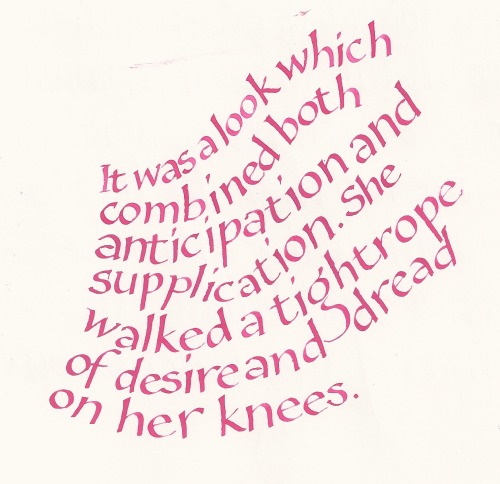 It was a look which
combined both
anticipation and
supplication. She
walked a tightrope
of desire and dread
on her knees.